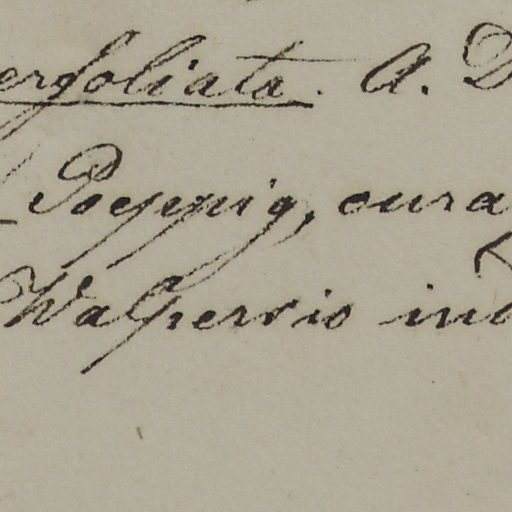 erfoliata. A. D
Poeppig, cura
Walpersio ind